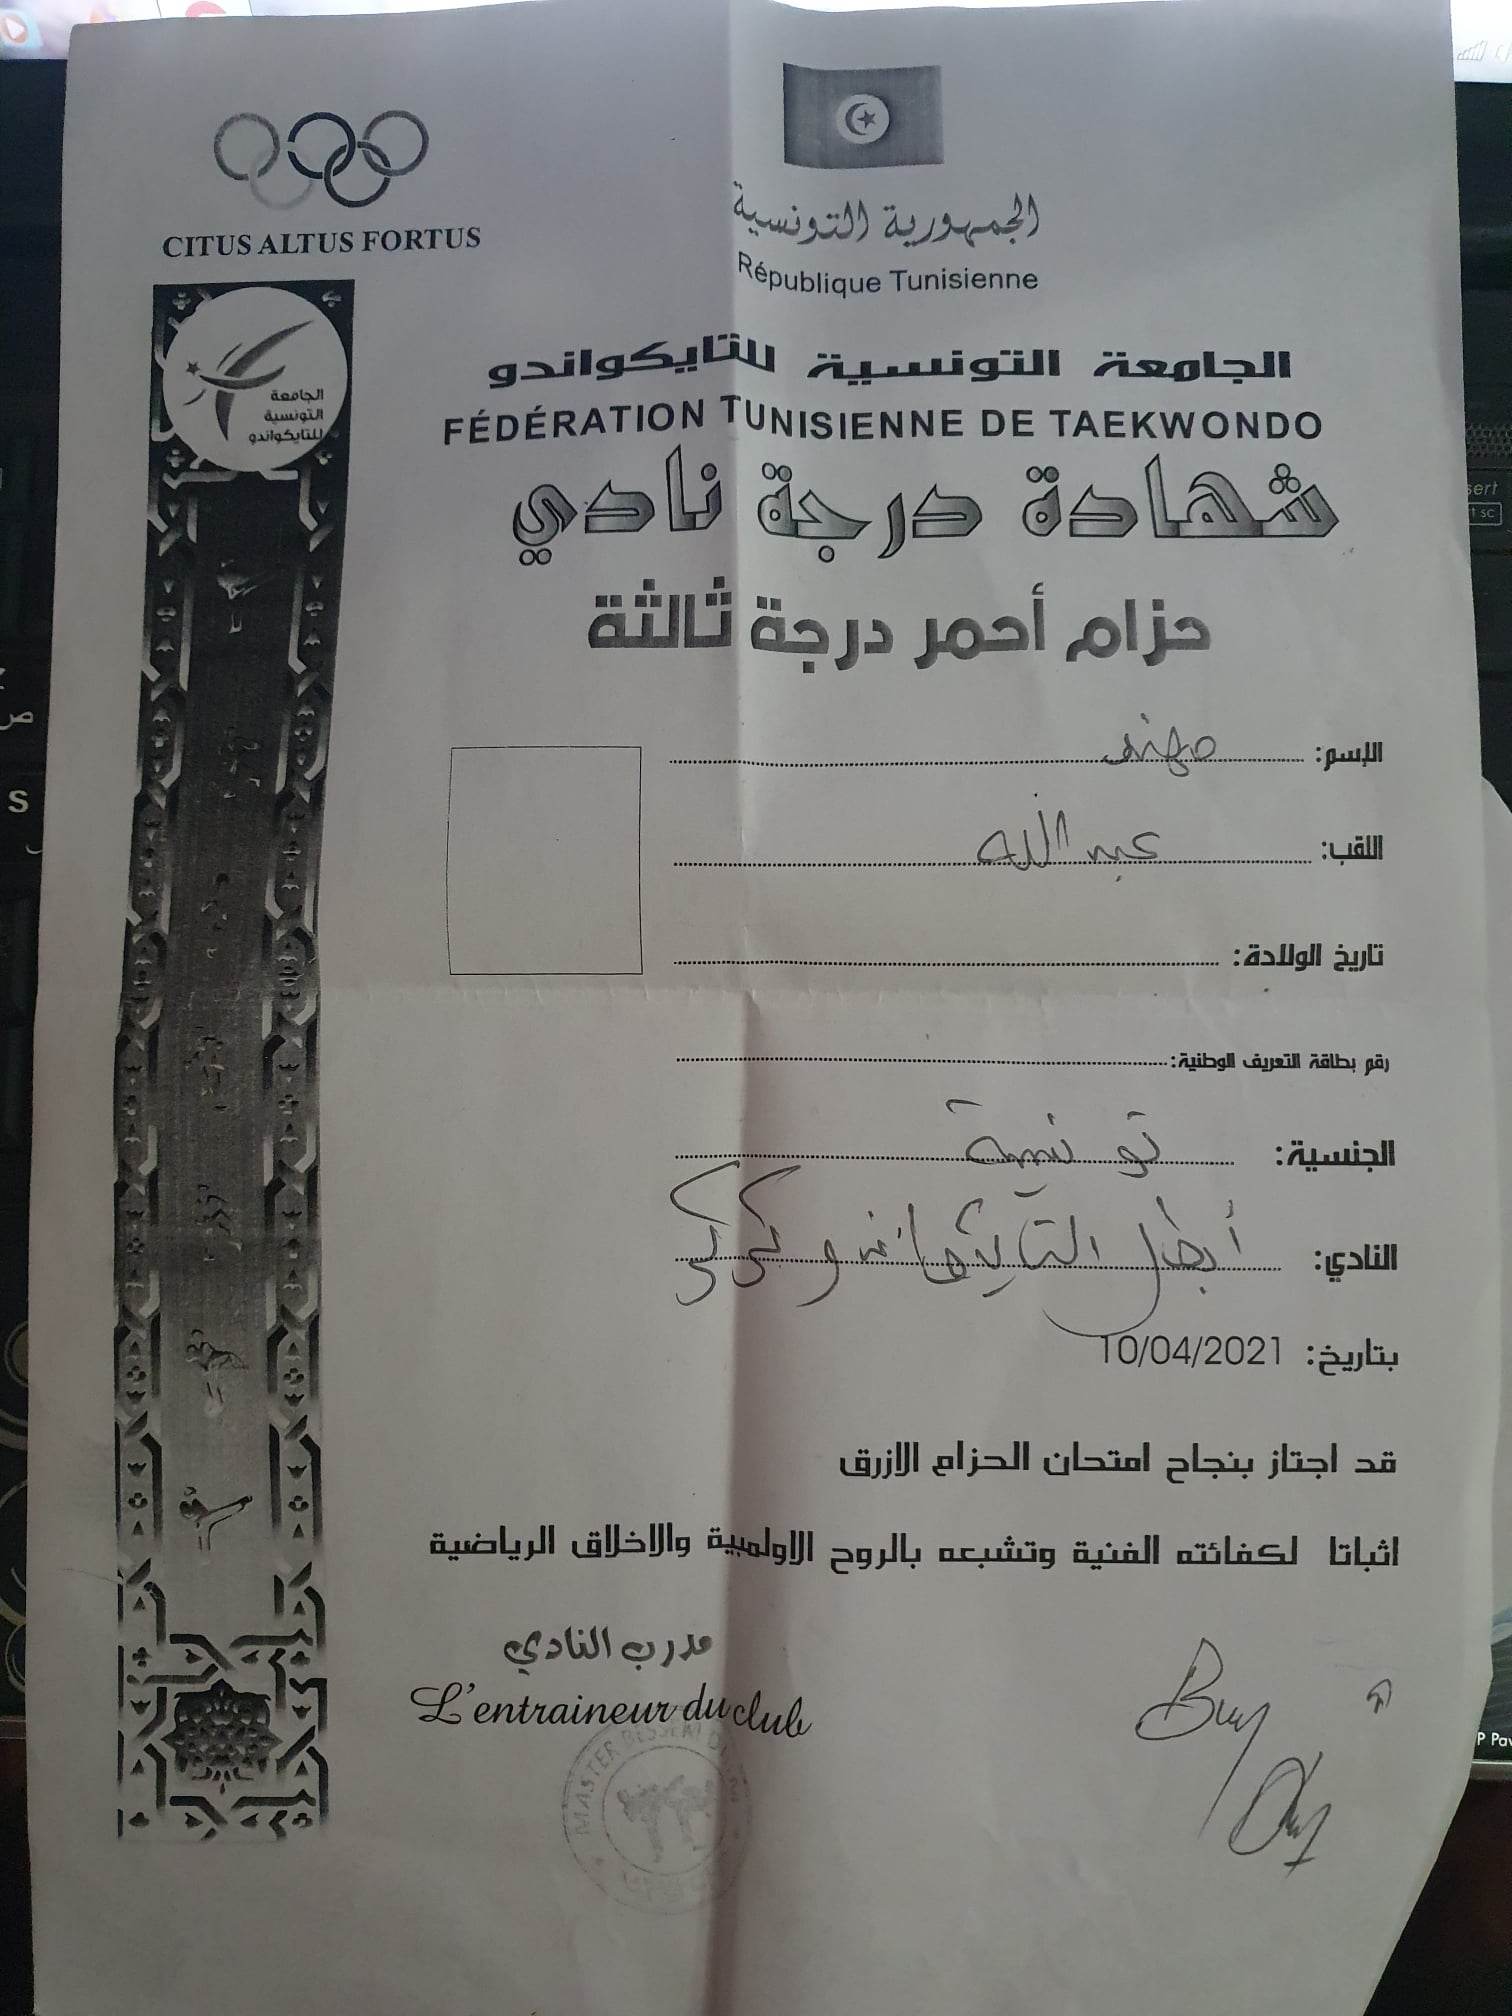 CITUS ALTUS FORTUS
الجمهورية التونسية
République Tunisienne
الجامعة التونسية للتايكواندو
FÉDÉRATION TUNISIENNE DE TAEKWONDO
الجامعة
التونسية
للتايكواندو
شهادة درجة نادي
حزام أحمر درجة ثالثة
الإسم: مهند
اللقب: عبد الله
تاريخ الولادة:
رقم بطاقة التعريف الوطنية:
الجنسية: تونسية
النادي: أبطال التايكواندو
بتاريخ: 10/04/2021
قد اجتاز بنجاح امتحان الحزام الازرق
اثباتا لكفائته الفنية وتشبعه بالروح الاولمبية والاخلاق الرياضية
مدرب النادي
L'entraineur du club
MASTER